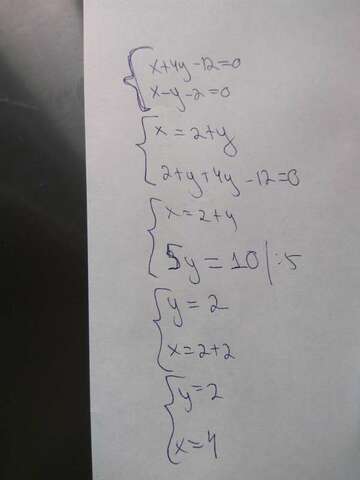 x+4y-12=0
x-y-2=0
x=2+y
2+y+4y-12=0
x=2+y
5y=10|:5
y=2
x=2+2
y=2
x=4